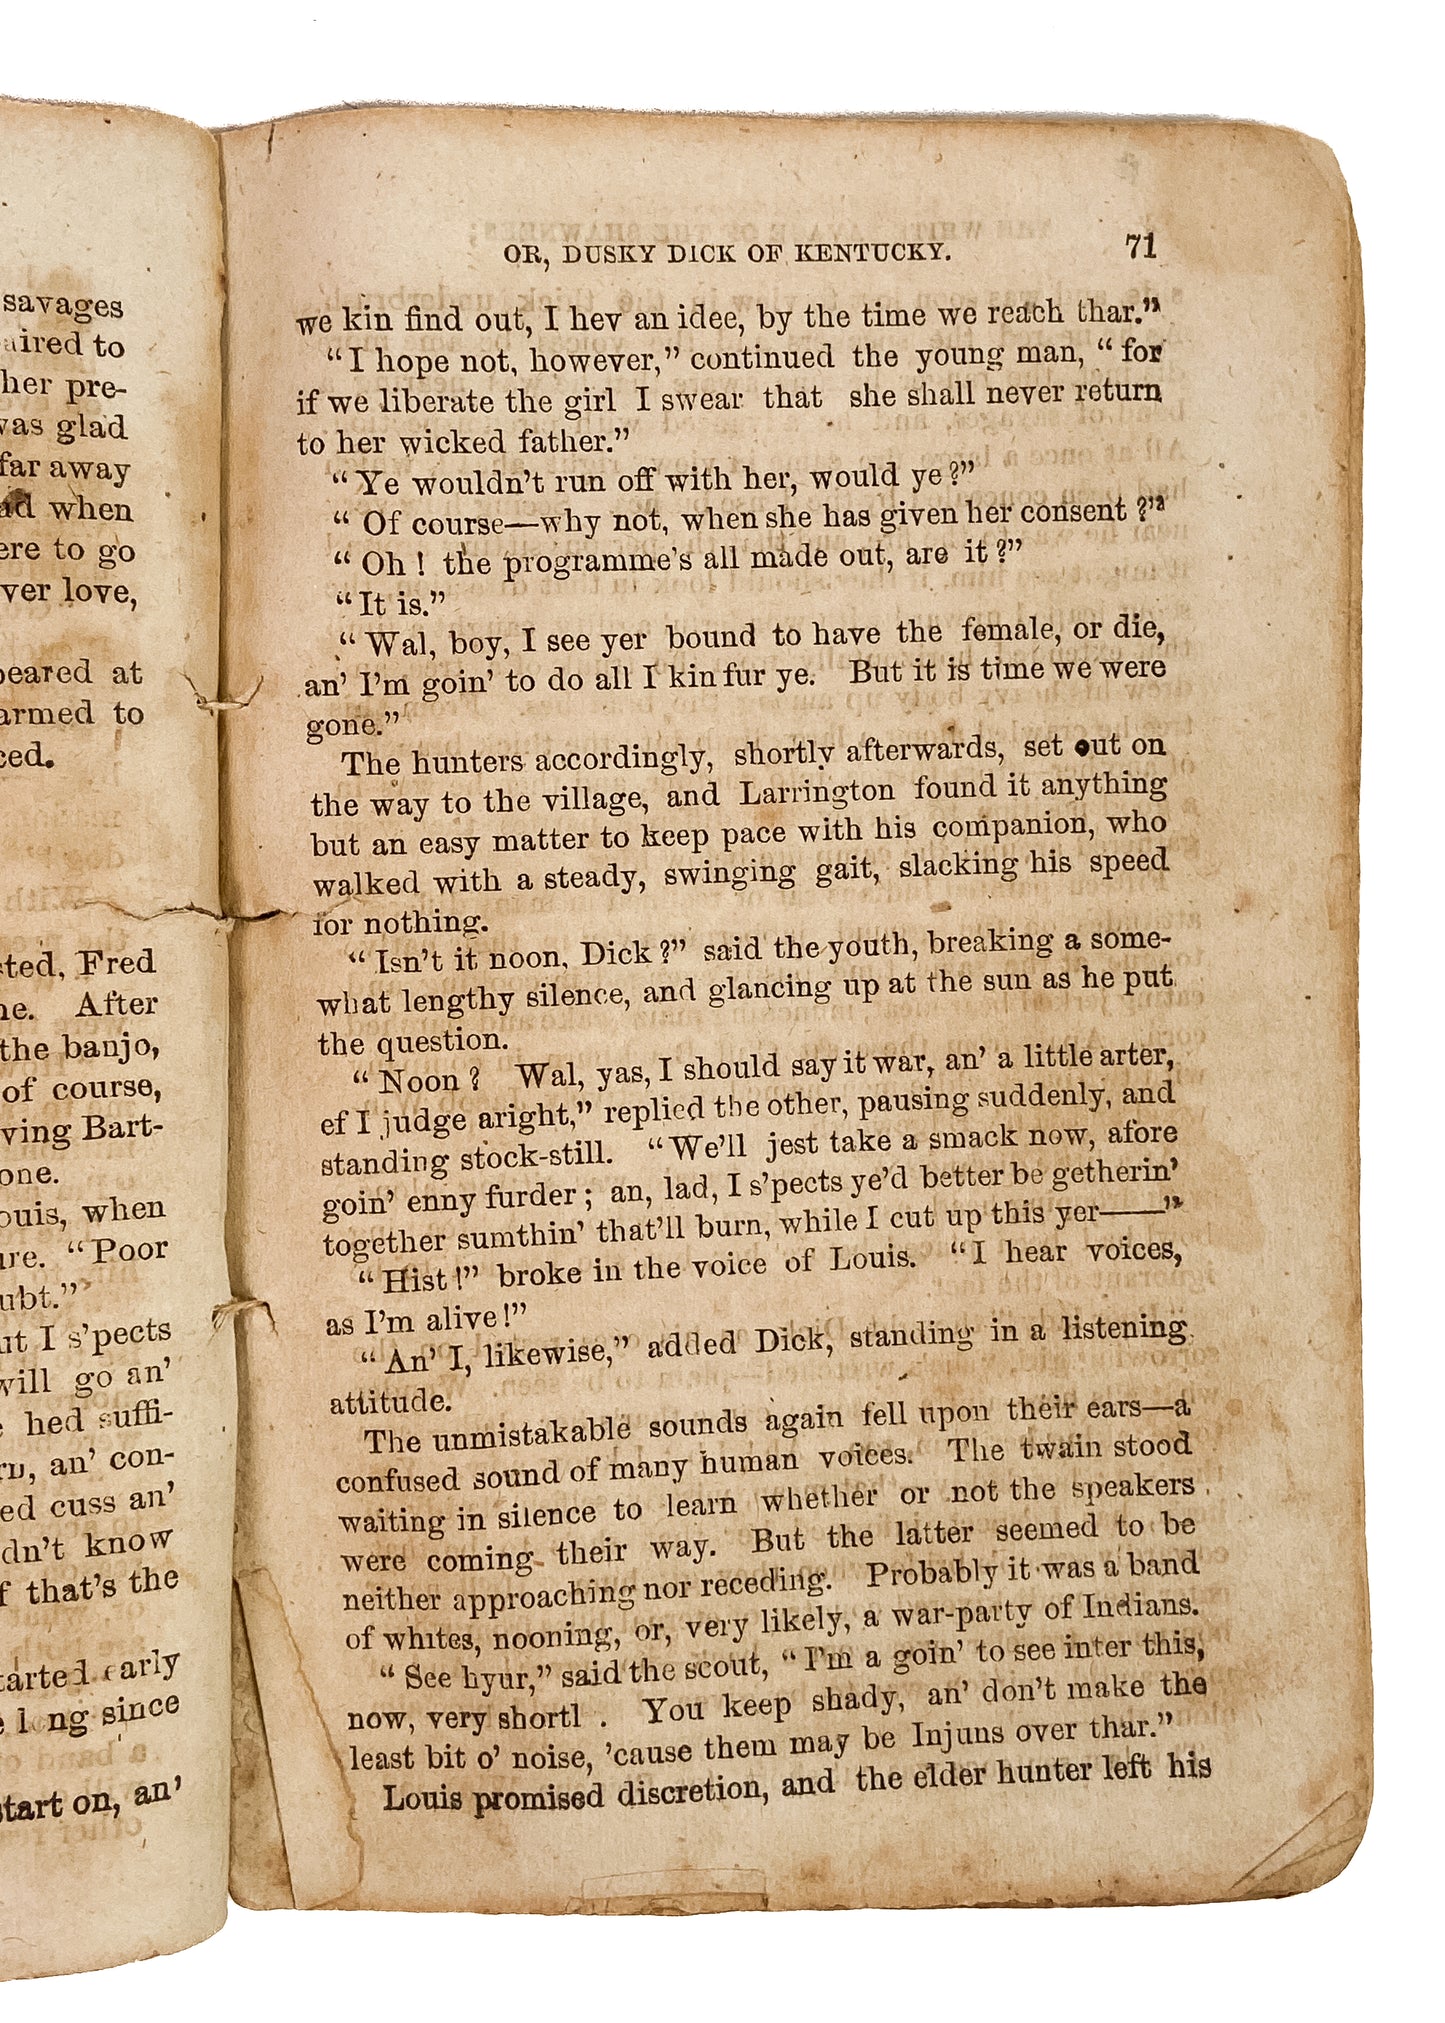 savages
to
her pre-
was glad
far away
when
to go
ver love,
at
to
Fred
After
the banjo,
of course,
ving Bart-
one.
when
"Poor
I s'pects
will go an'
hed suffi-
an' con-
cuss an'
know
that's the
early
since
start on, an'
OR, DUSKY DICK OF KENTUCKY. 71
we kin find out, I hev an idee, by the time we reach thar."
"I hope not, however," continued the young man, "for
if we liberate the girl I swear that she shall never return
to her wicked father."
"Ye wouldn't run off with her, would ye?"
"Of course—why not, when she has given her consent?"
"Oh! the programme's all made out, are it?"
"It is."
"Wal, boy, I see yer bound to have the female, or die,
an' I'm goin' to do all I kin fur ye. But it is time we were
gone."
The hunters accordingly, shortly afterwards, set out on
the way to the village, and Larrington found it anything
but an easy matter to keep pace with his companion, who
walked with a steady, swinging gait, slacking his speed
for nothing.
"Isn't it noon, Dick?" said the youth, breaking a some-
what lengthy silence, and glancing up at the sun as he put
the question.
"Noon? Wal, yas, I should say it war, an' a little arter,
ef I judge aright," replied the other, pausing suddenly, and
standing stock-still. "We'll jest take a smack now, afore
goin' enny furder; an, lad, I s'pects ye'd better be getherin'
together sumthin' that'll burn, while I cut up this yer——"
"Hist!" broke in the voice of Louis. "I hear voices,
as I'm alive!"
"An' I, likewise," added Dick, standing in a listening
attitude.
The unmistakable sounds again fell upon their ears—a
confused sound of many human voices. The twain stood
waiting in silence to learn whether or not the speakers
were coming their way. But the latter seemed to be
neither approaching nor receding. Probably it was a band
of whites, nooning, or, very likely, a war-party of Indians.
"See hyur," said the scout, "I'm a goin' to see inter this,
now, very shortl . You keep shady, an' don't make the
least bit o' noise, 'cause them may be Injuns over thar."
Louis promised discretion, and the elder hunter left his